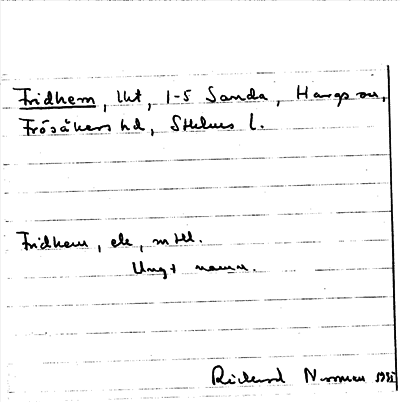 Fridhem, lht, 1-5 Sanda, Hargs sn,
Frösåkers hd, Sthlms l.
Fridhem, ele, m Hl.
Ungt namn.
Rickard Norrman